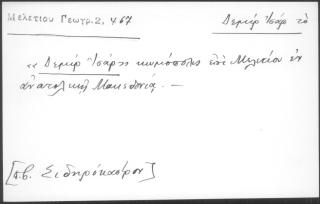 Μελετίου Γεωγρ. 2, 467
Δεμίρ Ἰσάρ τὸ
«Δεμίρ Ἰσάρ» κωμόπολις ἐπὶ Μελετίου ἐν
ἀνατολικῇ Μακεδονίᾳ. —
[πβ. Σιδηρόκαστρον]